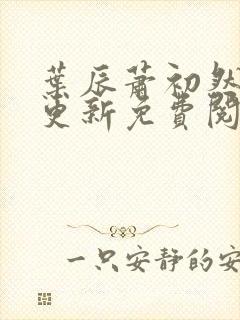 葉辰蕭初然
更新免費閱
一只安靜的安